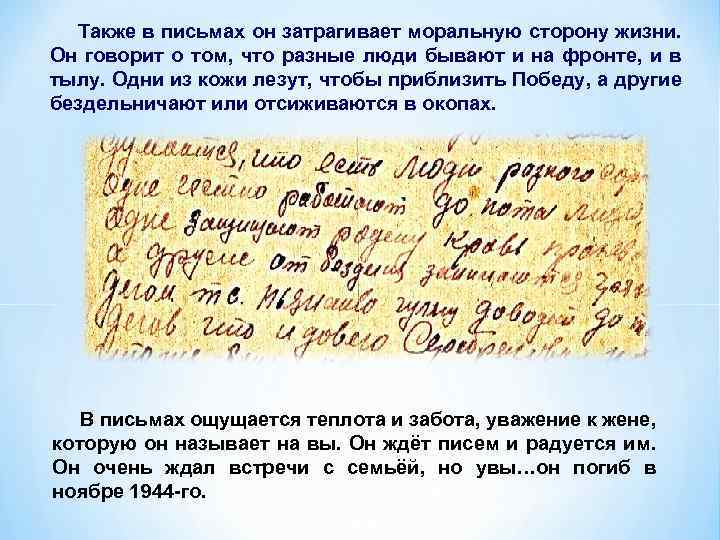 Также в письмах он затрагивает моральную сторону жизни.
Он говорит о том, что разные люди бывают и на фронте, и в
тылу. Одни из кожи лезут, чтобы приблизить Победу, а другие
бездельничают или отсиживаются в окопах.
думается, что есть люди разного
одне честно работают до пота
одне защищают родену кровь
а другие от бездели занимаются
делом т.с.
что и довего
В письмах ощущается теплота и забота, уважение к жене,
которую он называет на вы. Он ждёт писем и радуется им.
Он очень ждал встречи с семьёй, но увы…он погиб в
ноябре 1944-го.